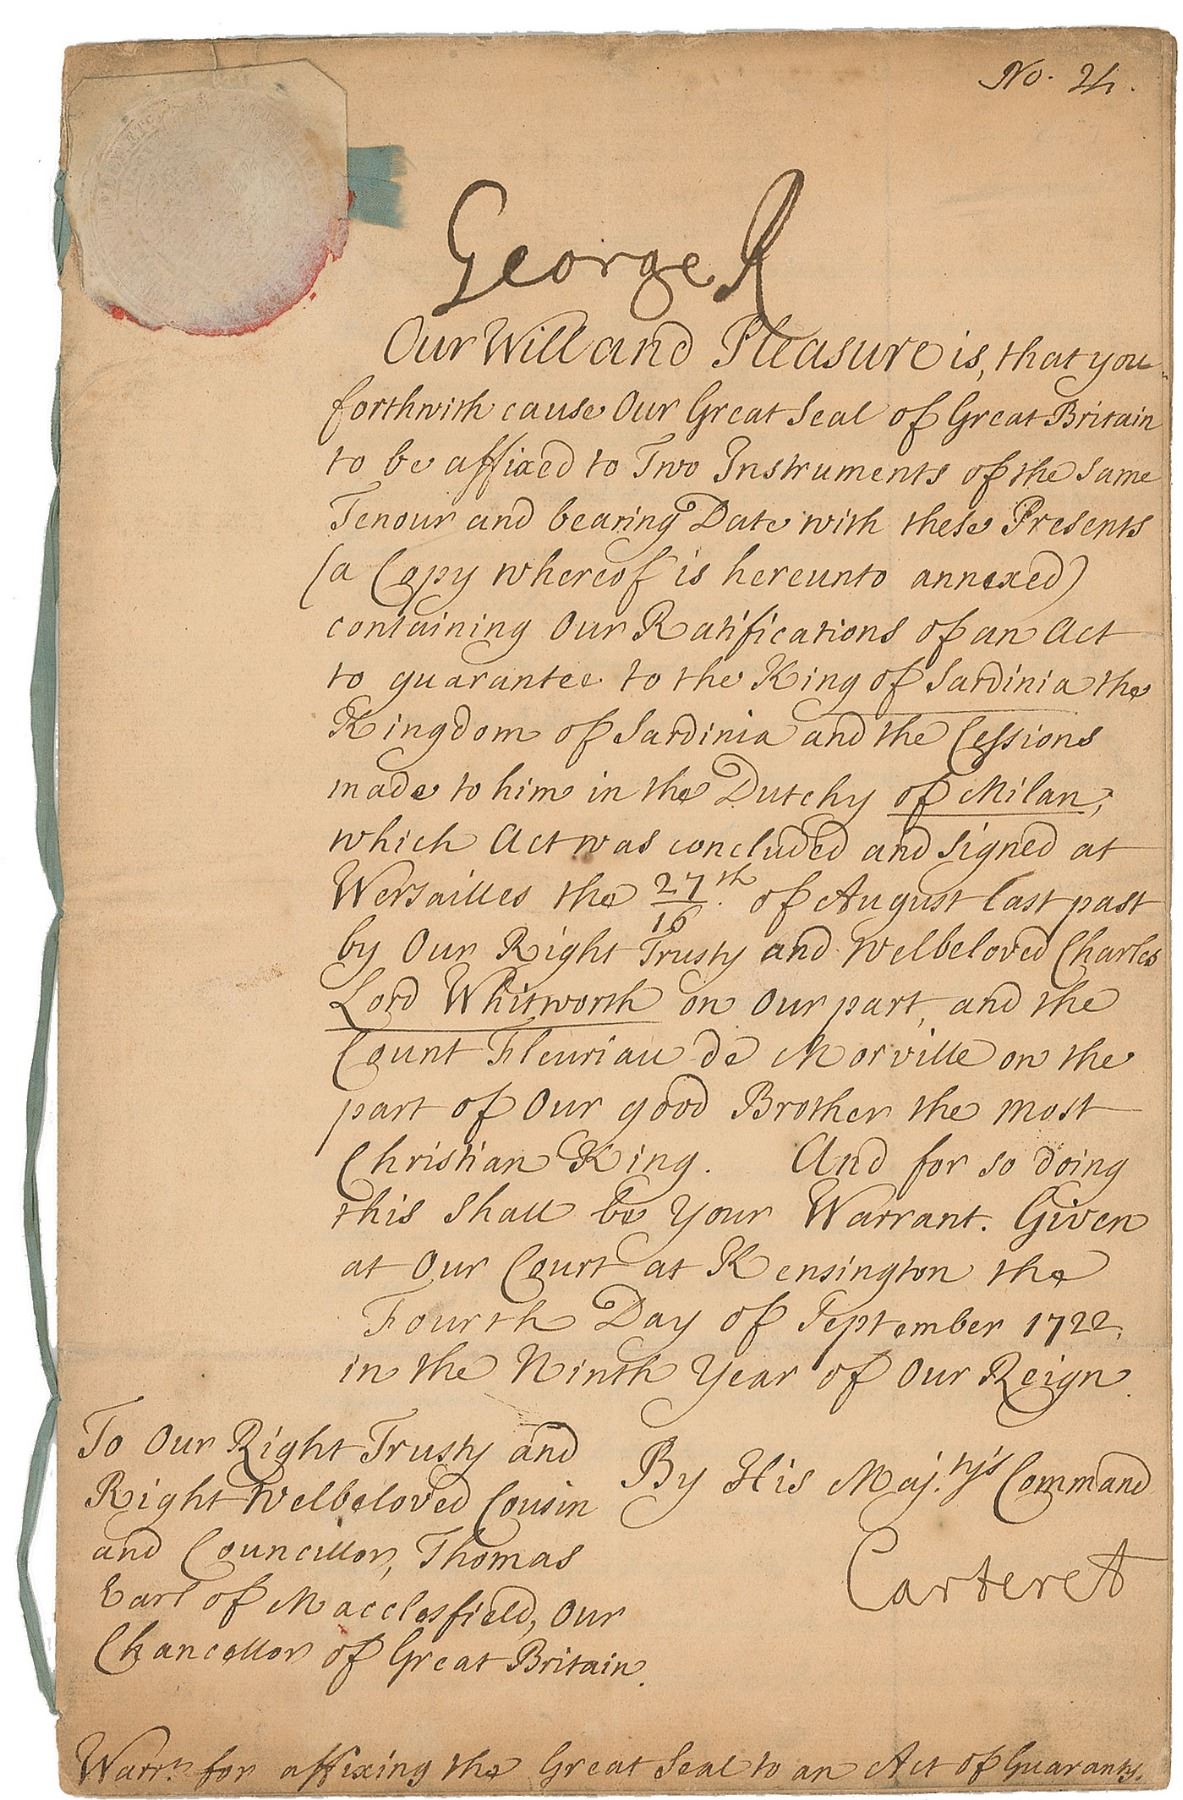 No. 24.
George R
Our Will and Pleasure is, that you
forthwith cause Our Great Seal of Great Britain
to be affixed to Two Instruments of the same
Tenour and bearing Date with these Presents
(a Copy whereof is hereunto annexed)
containing Our Ratifications of an Act
to guarantee to the King of Sardinia the
Kingdom of Sardinia and the Cessions
made to him in the Dutchy of Milan,
which Act was concluded and signed at
Versailles the 27/16th. of August last past
by Our Right Trusty and Welbeloved Charles
Lord Whitworth on Our part, and the
Count Fleuriau de Morville on the
part of Our good Brother the most
Christian King. And for so doing
this shall be Your Warrant. Given
at Our Court at Kensington the
Fourth Day of September 1722.
in the Ninth Year of Our Reign.
To Our Right Trusty and
Right Welbeloved Cousin
and Councillor, Thomas
Earl of Macclesfield, Our
Chancellor of Great Britain.
By His Maj.ty's Command
Carteret
Warr.t for affixing the Great Seal to an Act of Guaranty.